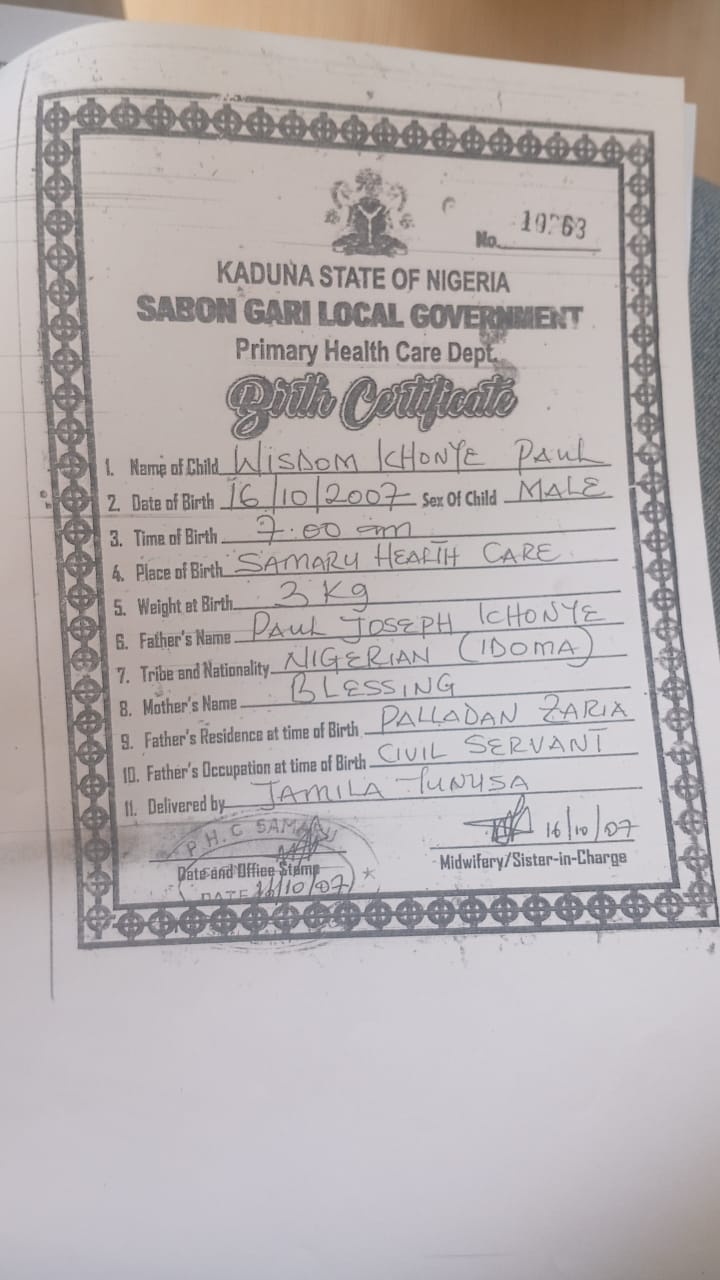 No. 19763
KADUNA STATE OF NIGERIA
SABON GARI LOCAL GOVERNMENT
Primary Health Care Dept.
Birth Certificate
1. Name of Child WISDOM ICHONYE PAUL
2. Date of Birth 16/10/2007 Sex Of Child MALE
3. Time of Birth 7.00 am
4. Place of Birth SAMARU HEALTH CARE
5. Weight at Birth 3 Kg
6. Father's Name PAUL JOSEPH ICHONYE
7. Tribe and Nationality NIGERIAN (IDOMA)
8. Mother's Name BLESSING
9. Father's Residence at time of Birth PALLADAN ZARIA
10. Father's Occupation at time of Birth CIVIL SERVANT
11. Delivered by JAMILA YUNUSA
P.H.C SAMARU
16/10/07
Date and Office Stamp
Midwifery/Sister-in-Charge
DATE 16/10/07